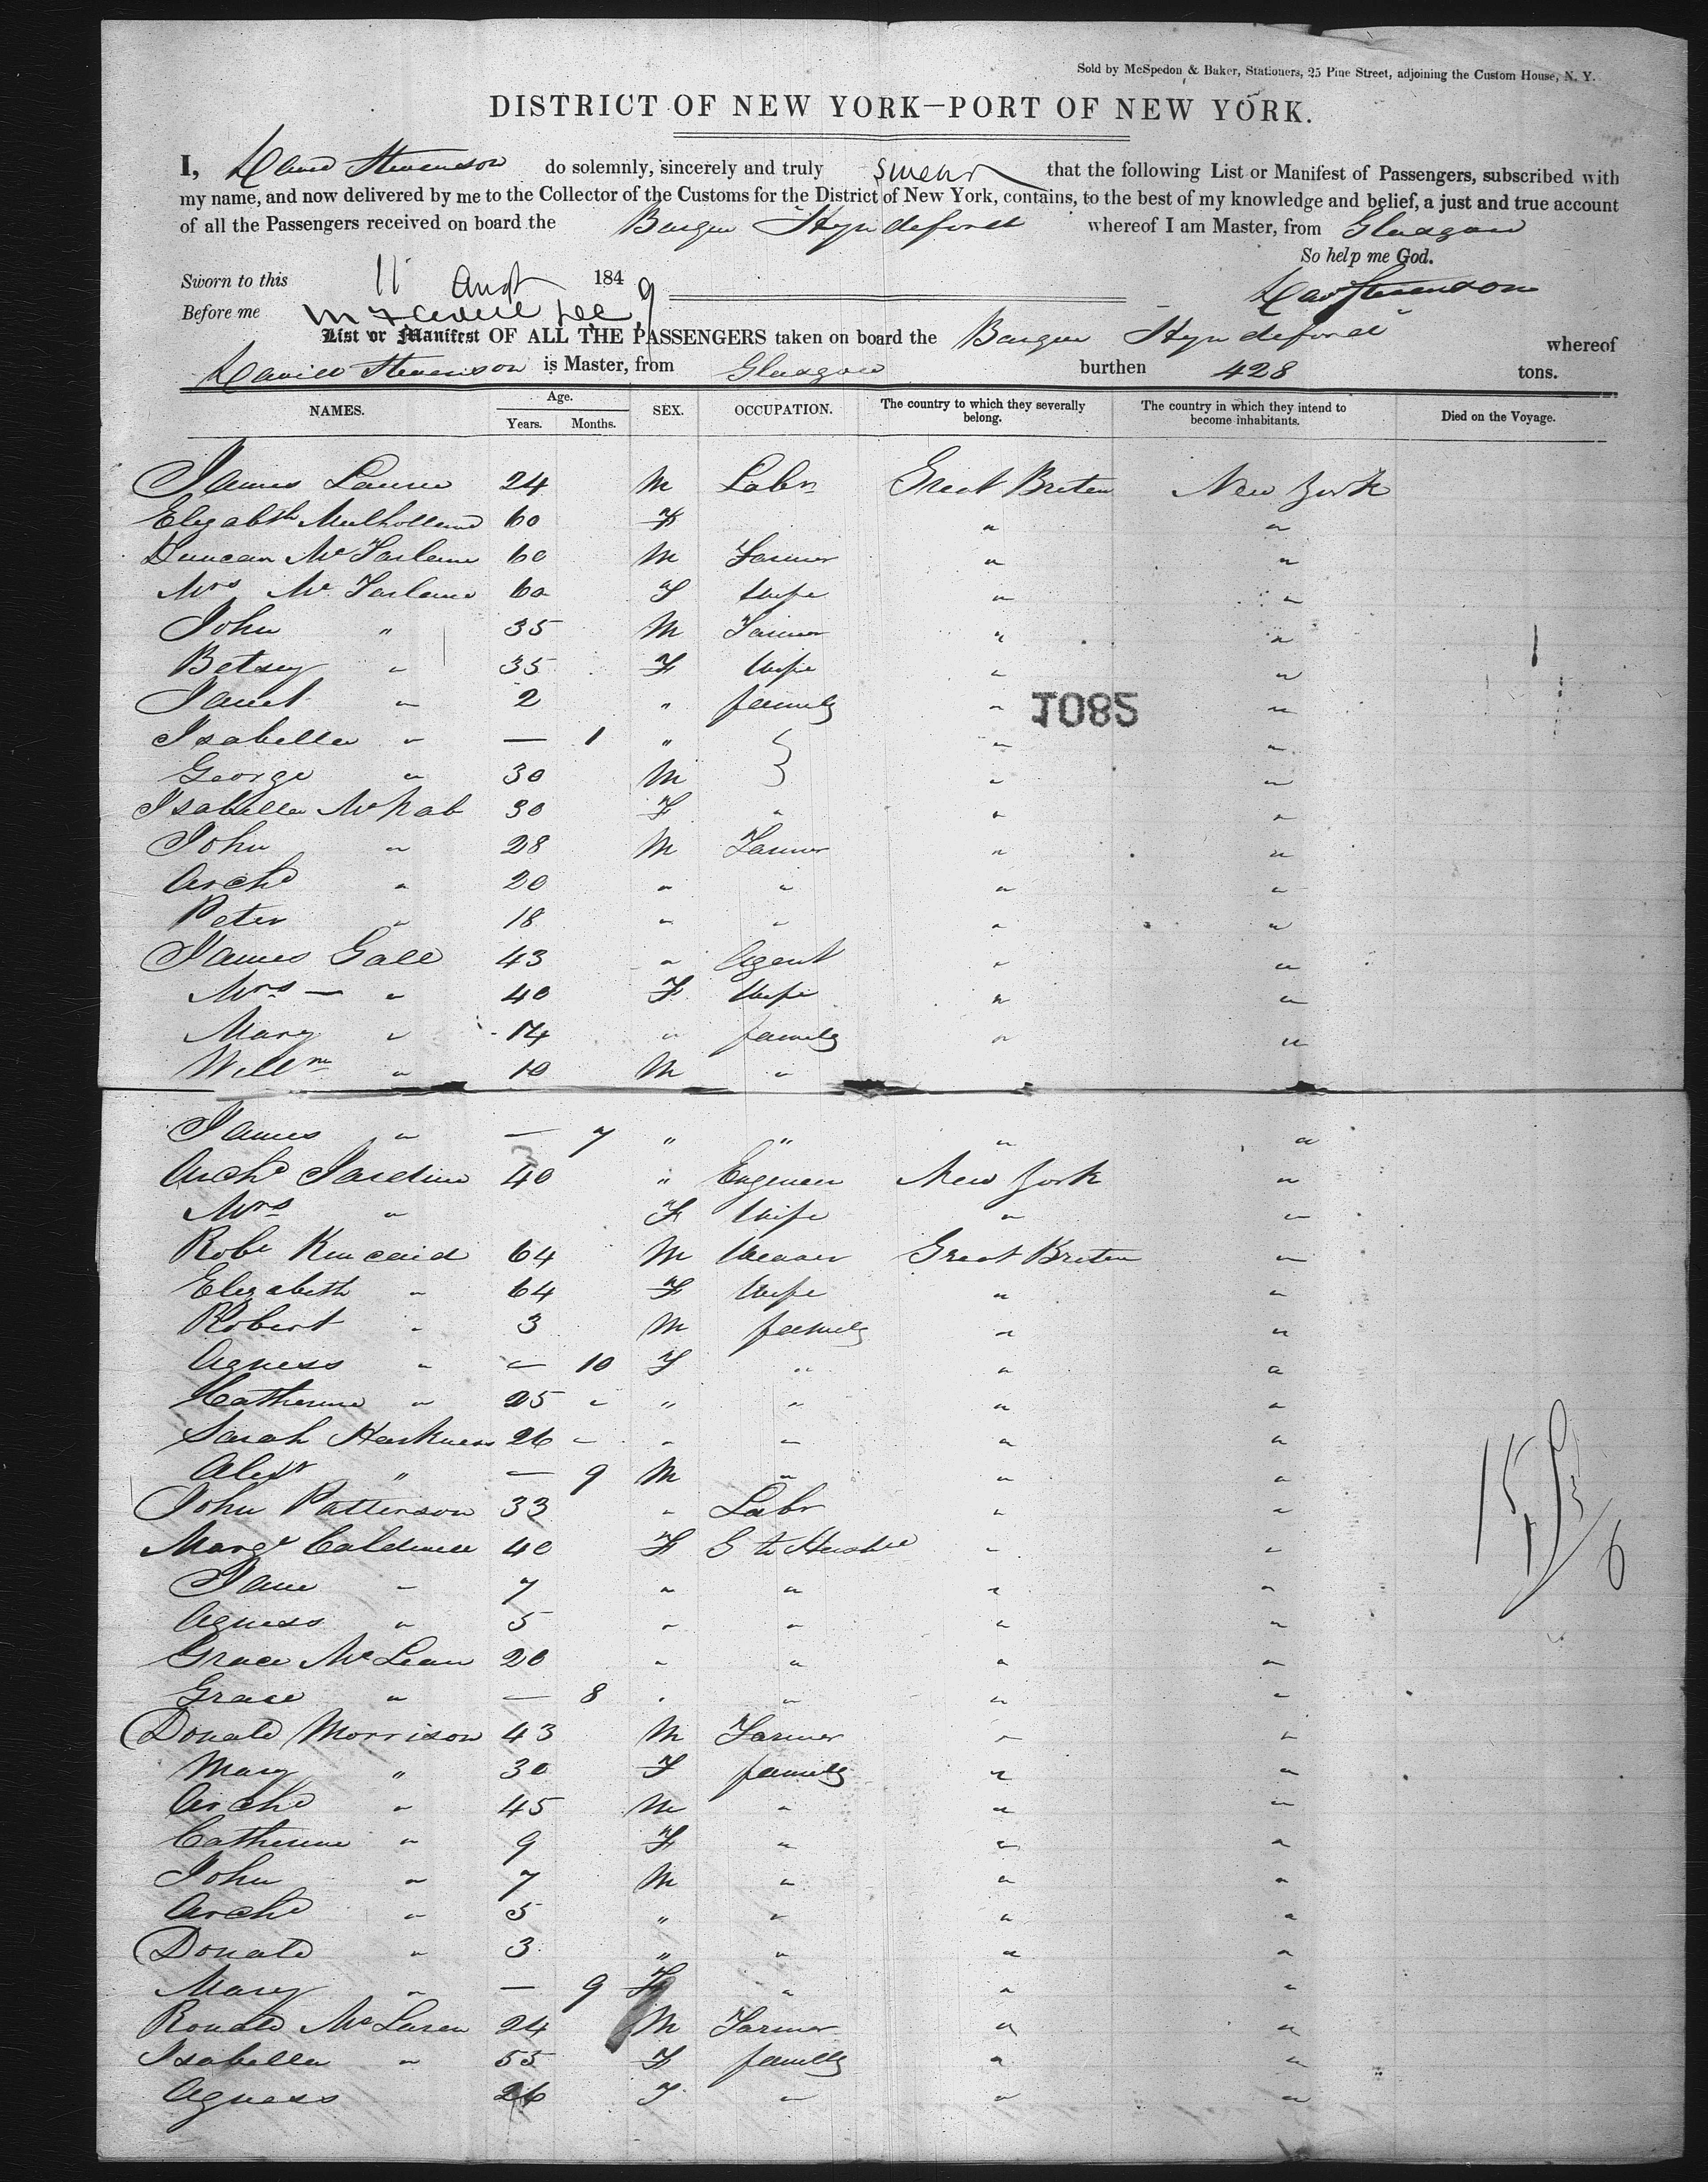 Sold by McSpedon & Baker, Stationers, 25 Pine Street, adjoining the Custom House, N. Y.
DISTRICT OF NEW YORK—PORT OF NEW YORK.
I, David Stevenson do solemnly, sincerely and truly swear that the following List or Manifest of Passengers, subscribed with
my name, and now delivered by me to the Collector of the Customs for the District of New York, contains, to the best of my knowledge and belief, a just and true account
of all the Passengers received on board the Barque Hyndeford whereof I am Master, from Glasgow
So help me God.
Sworn to this 11 Augt 1849
Dav Stevenson
Before me
List or Manifest OF ALL THE PASSENGERS taken on board the Barque Hyndeford whereof
David Stevenson is Master, from Glasgow burthen 428 tons.
NAMES. Age. Years. Months. SEX. OCCUPATION. The country to which they severally belong. The country in which they intend to become inhabitants. Died on the Voyage.
James Laurie 24 M Labr Great Briten New York
Elizabth Mulholland 60 F " "
Duncan McFarlane 60 M Farmer " "
Mrs McFarlane 60 F Wife " "
John " 35 M Farmer " "
Betsey " 35 F Wife " "
Janet " 2 " family " "
1085
Isabella " — 1 " " "
George " 30 M " "
Isabella McNab 30 F " " "
John " 28 M Farmer " "
Archd " 20 " " " "
Peter " 18 " " " "
James Gall 43 " Agent " "
Mrs — " 40 F Wife " "
Mary " 14 " family " "
Willm " 10 M " " "
James " — 7 " " " "
Archd Jardine 40 " Engeneer New York "
Mrs " F Wife " "
Robt Kincaid 64 M Weaver Great Briten "
Elizabeth " 64 F Wife " "
Robert " 3 M family " "
Agness " — 10 F " " "
Catherine " 25 " " " " "
Sarah Harkness 26 " " " " "
Alexr " — 9 M " " "
John Patterson 33 " Labr " "
Margt Caldwell 40 F G to Husbd " "
Jane " 7 " " " "
Agness " 5 " " " "
Grace McLean 20 " " " "
Grace " — 8 " " " "
Donald Morrison 43 M Farmer " "
Mary " 30 F family " "
Archd " 45 M " " "
Catherine " 9 F " " "
John " 7 M " " "
Archd " 5 " " " "
Donald " 3 " " " "
Mary " — 9 F " " "
Ronald McLaren 24 M Farmer " "
Isabella " 55 F family " "
Agness 26 F " " "